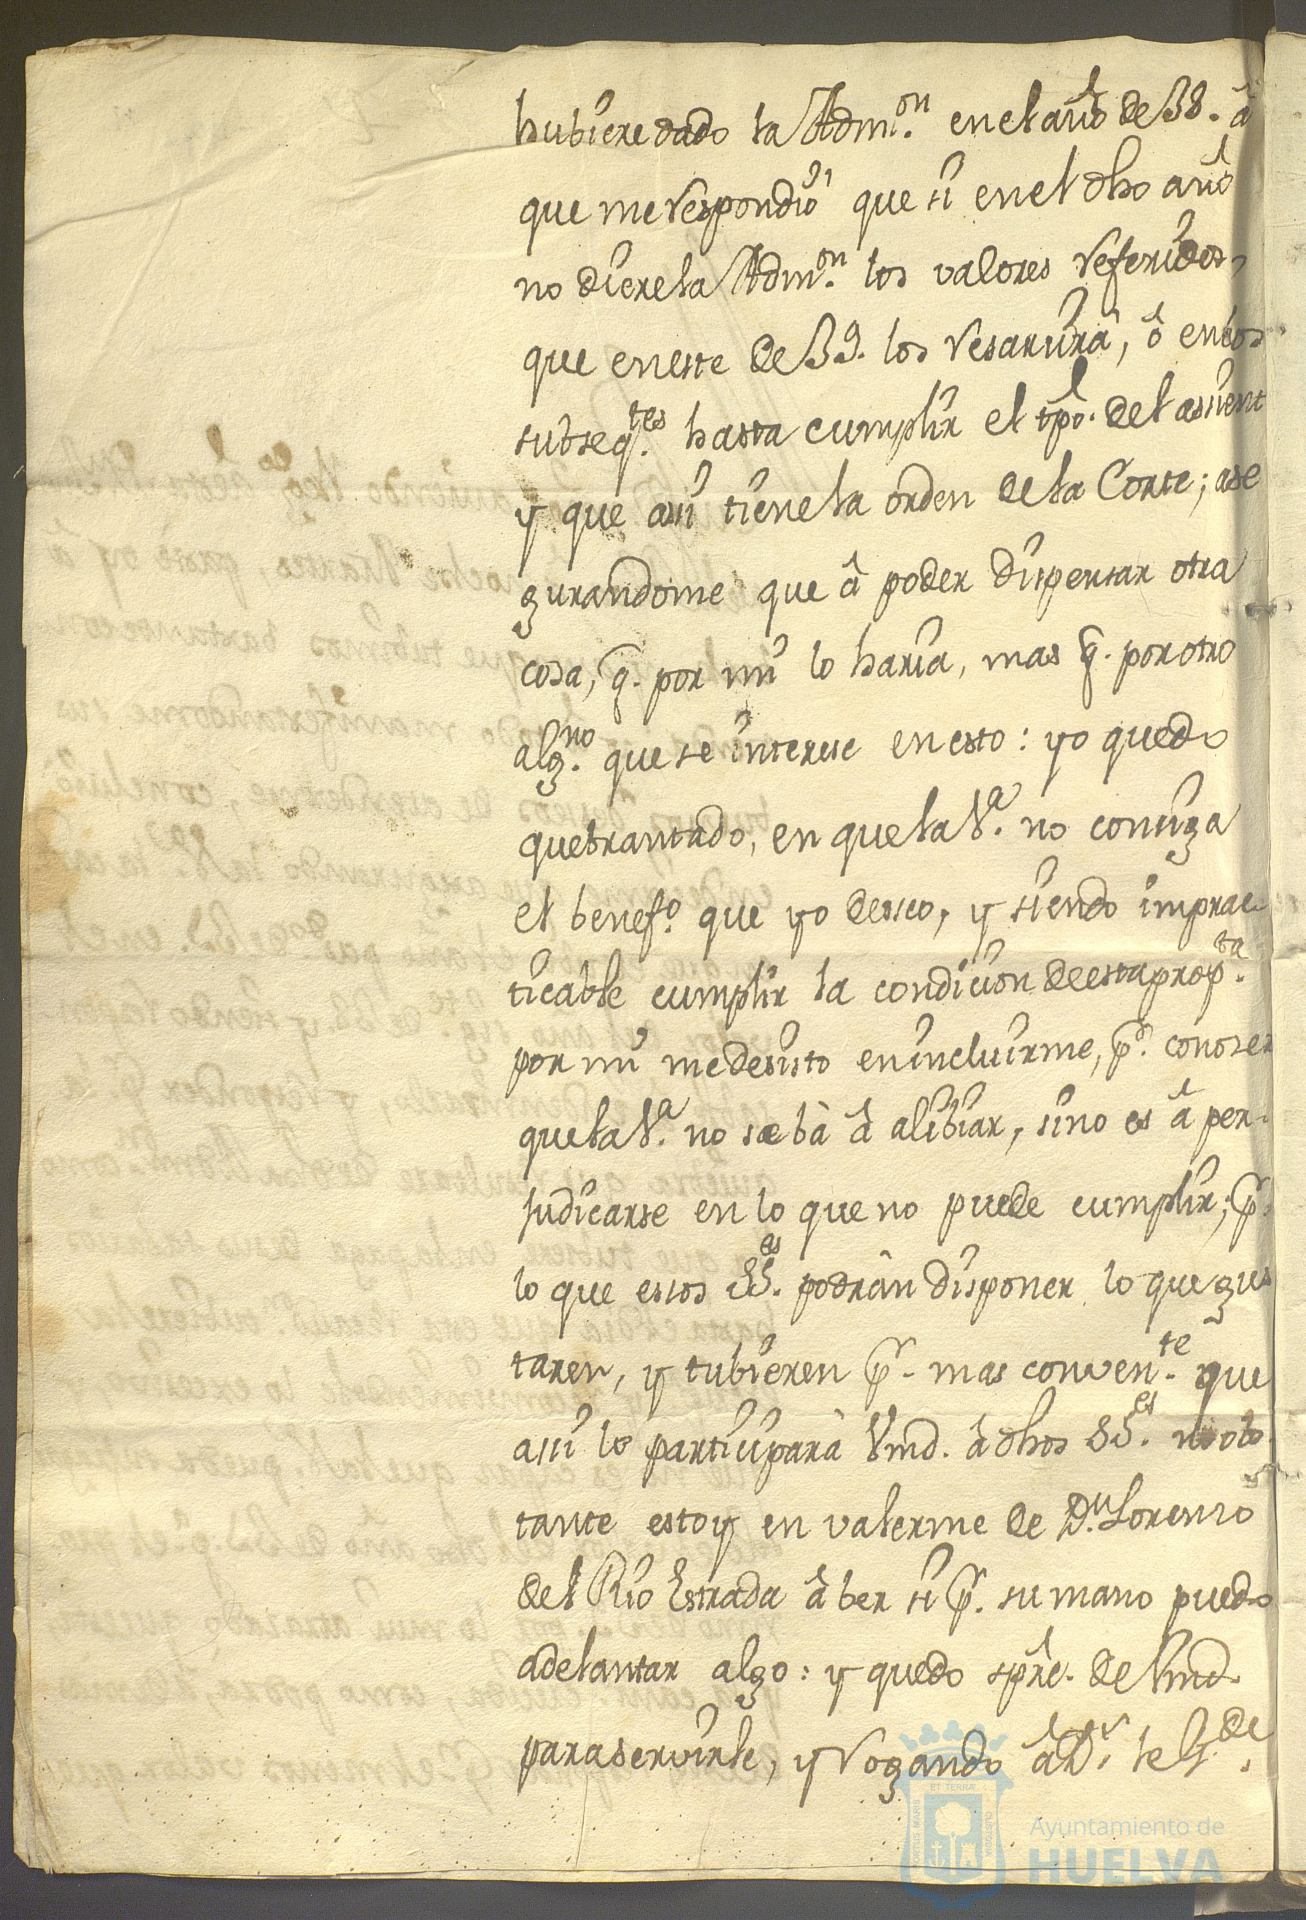 hubiere dado la Adm.on en el año de 38. â
que me respondio que si en el dho año
no diere la Adm.on los valores referidos,
que en este de 39. los resarzirâ, ô en los
subseq.tes hasta cumplir el tpo. del assient
y que assi tiene la orden de la Corte; ase
gurandome que â poder dispensar otra
cosa, q. por mi lo haria, mas q. por otro
alg.no que se interese en esto: yo quedo
quebrantado, en que la V.a no consiga
el benef.o que yo desseo, y siendo imprac
ticable cumplir la condicion de esta prop.ta
por mi me desisto en incluirme, p.r conoser
que la V.a no se bà â alibiar, sino es â per-
judicarse en lo que no puede cumplir; p.r
lo que essos SS.es podràn disponer lo que gus
taren, y tubieren p.r mas conven.te que
assi lo participarà Vmd. â dhos SS.es no obs
tante estoy en valerme de D.n Lorenzo
del Rio Estrada â ber si p.r su mano puedo
adelantar algo: y quedo spre. de Vmd.
para servirle, y rogando â D.s le g.de
Ayuntamiento de
HUELVA